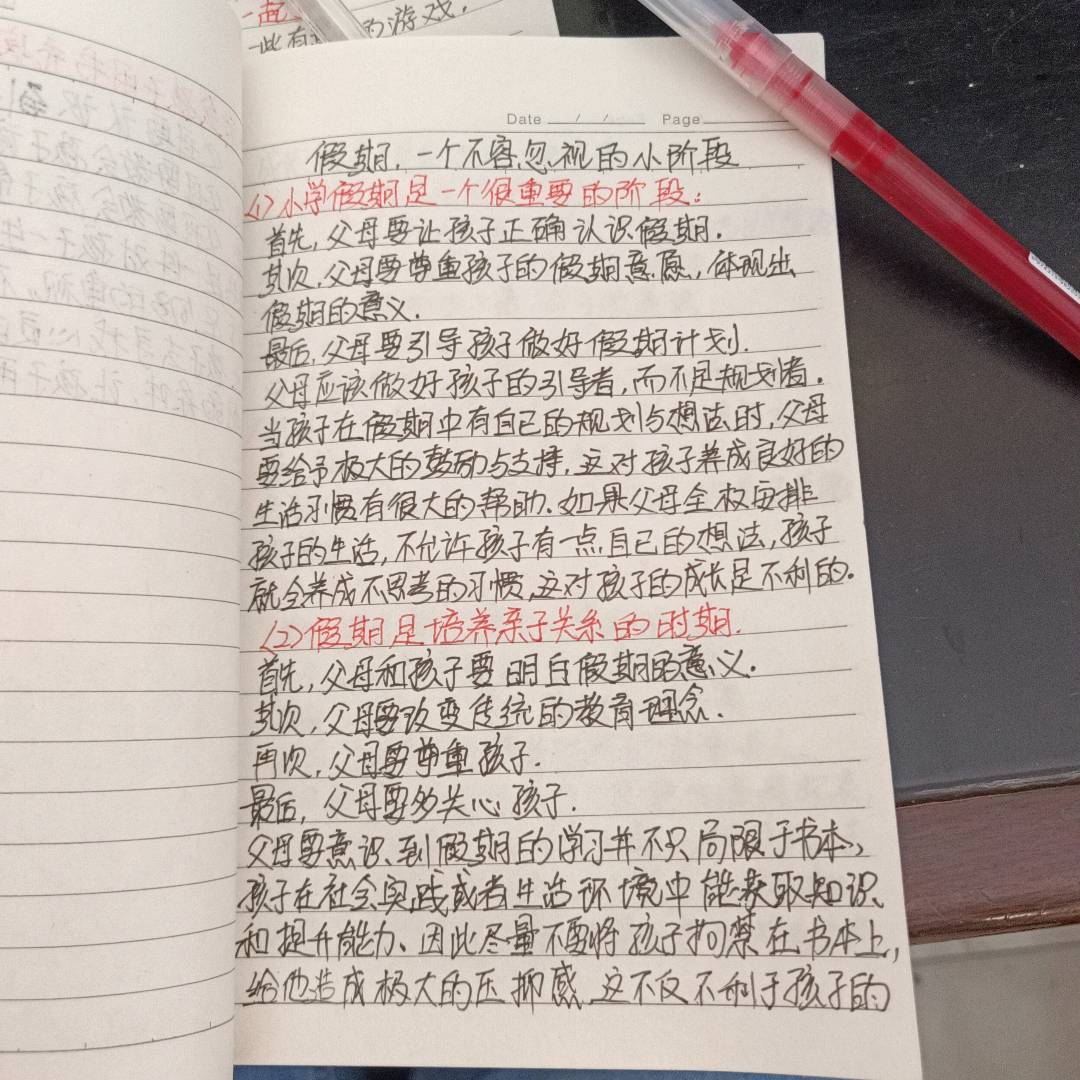 一此有 的游戏.
Date / / Page
假期,一个不容忽视的小阶段
(1)小学假期是一个很重要的阶段:
首先,父母要让孩子正确认识假期.
其次,父母要尊重孩子的假期意愿,体现出
假期的意义.
最后,父母要引导孩子做好假期计划.
父母应该做好孩子的引导者,而不是规划者.
当孩子在假期中有自己的规划与想法时,父母
要给予极大的鼓励与支持,这对孩子养成良好的
生活习惯有很大的帮助.如果父母全权安排
孩子的生活,不允许孩子有一点自己的想法,孩子
就会养成不思考的习惯,这对孩子的成长是不利的.
(2)假期是培养亲子关系的时期.
首先,父母和孩子要明白假期的意义.
其次,父母要改变传统的教育理念.
再次,父母要尊重孩子.
最后,父母要多关心孩子.
父母要意识到假期的学习并不只局限于书本,
孩子在社会实践或者生活环境中能获取知识
和提升能力、因此尽量不要将孩子拘禁在书本上,
给他造成极大的压抑感,这不仅不利于孩子的